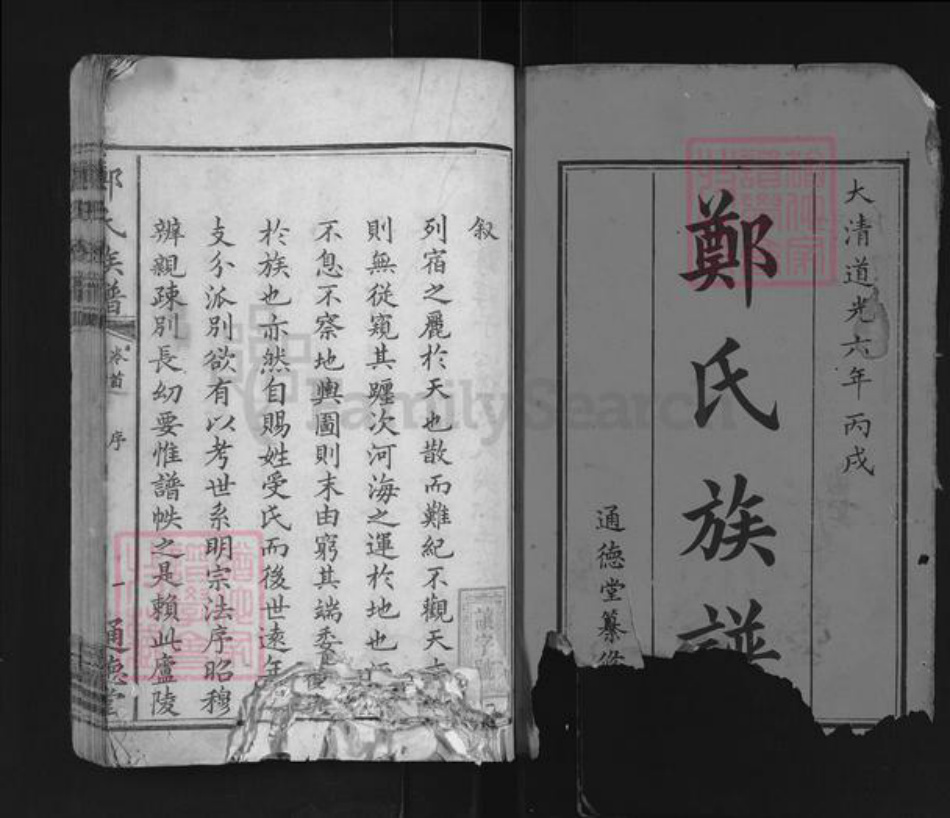 大清道光六年丙戌
鄭氏族譜
通德堂纂修
叙
列宿之麗於天也散而難紀不觀天
則無從窺其躔次河海之運於地也
不息不察地輿圖則末由窮其端委
於族也亦然自賜姓受氏而後世遠年
支分派別欲有以考世系明宗法序昭穆
辨親疎別長幼要惟譜帙之是賴此廬陵
鄭氏族譜
卷首
序
一
通德堂
FamilySearch